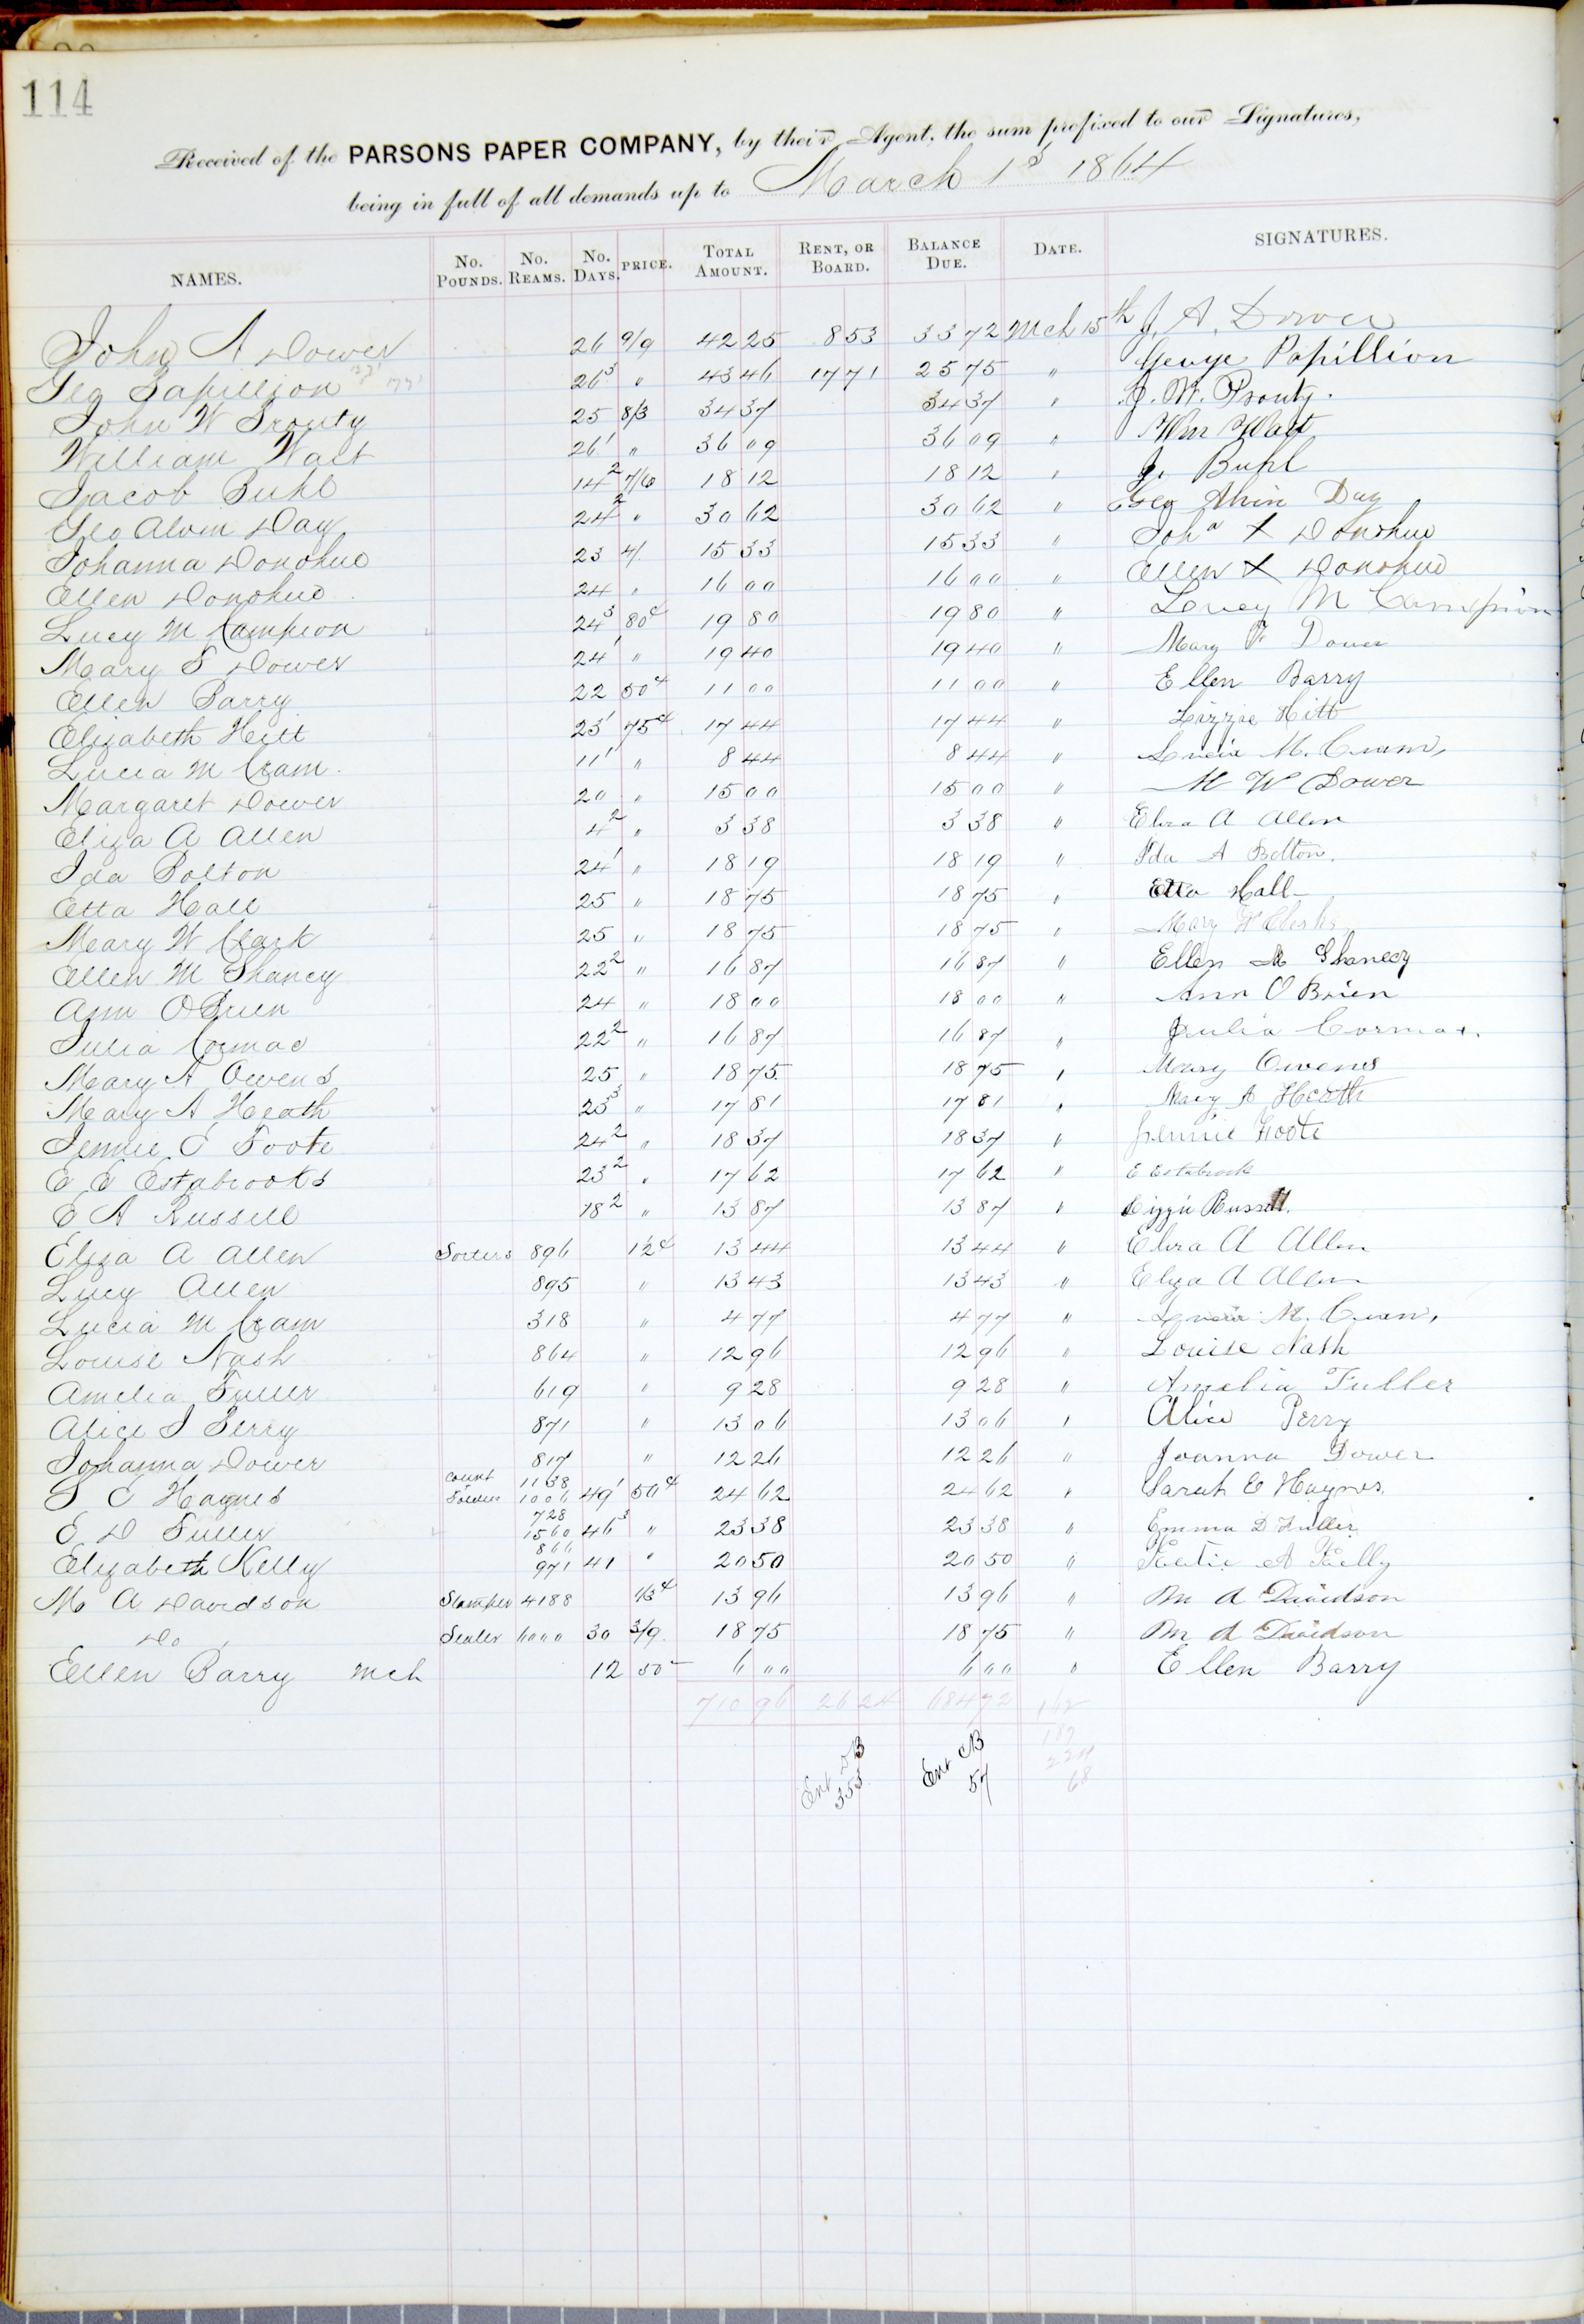 114
Received of the PARSONS PAPER COMPANY, by their Agent, the sum prefixed to our Signatures,
being in full of all demands up to March 1st 1864
NAMES. No. POUNDS. No. REAMS. No. DAYS. PRICE. TOTAL AMOUNT. RENT, OR BOARD. BALANCE DUE. DATE. SIGNATURES.
John A Dower 26 9/9 42 25 8 53 33 72 Mch 15th J. A. Dower
Geo Papillion 26 3 " 43 46 17 71 25 75 " George Papillion
John W Prouty 25 8/3 34 37 34 37 " J. W. Prouty.
William Wait 26 1 " 36 09 36 09 " Wm Wait
Jacob Buhl 14 2 7/6 18 12 18 12 " J. Buhl
Geo Alvin Day 24 2 " 30 62 30 62 " Geo Alvin Day
Johanna Donohue 23 4/ 15 33 15 33 " Joha X Donohue
Ellen Donohue 24 " 16 00 16 00 " Ellen X Donohue
Lucy M Campion 24 3 80 c 19 80 19 80 " Lucy M Campion
Mary F Dower 24 1 " 19 40 19 40 " Mary F Dower
Ellen Barry 22 50 c 11 00 11 00 " Ellen Barry
Elizabeth Hitt 23 1 75 c 17 44 17 44 " Lizzie Hitt
Lucia M Cram. 11 1 " 8 44 8 44 " Lucia M. Cram,
Margaret Dower 20 " 15 00 15 00 " M W Dower
Eliza A Allen 4 2 " 3 38 3 38 " Eliza A Allen
Ida Bolton 24 1 " 18 19 18 19 " Ida A Bolton.
Etta Hall 25 " 18 75 18 75 " Etta Hall
Mary W Clark 25 " 18 75 18 75 " Mary W
Ellen M Shancy 22 2 " 16 87 16 87 " Ellen M Shanecy
Ann O Brien 24 " 18 00 18 00 " Ann O Brien
Julia Cormac 22 2 " 16 87 16 87 " Julia Cormac.
Mary A Owens 25 " 18 75 18 75 " Mary Owens
Mary A Heath 23 3 " 17 81 17 81 " Mary A Heath
Jennie E Foote 24 2 " 18 37 18 37 " Jennie Foote
E E Estabrooks 23 2 " 17 62 17 62 " E Estabrook
E A Russell 18 2 " 13 87 13 87 " Lizzie Russell.
Eliza A Allen Sorters 896 1½ c 13 44 13 44 " Eliza A Allen
Lucy Allen 895 " 13 43 13 43 " Eliza A Allen
Lucia M Cram 318 " 4 77 4 77 " Lucia M. Cram,
Louise Nash 864 " 12 96 12 96 " Louise Nash
Amelia Fuller 619 " 9 28 9 28 " Amelia Fuller
Alice J Perry 871 " 13 06 13 06 " Alice Perry
Johanna Dower 817 " 12 26 12 26 " Joanna Dower
S E Haynes Count 1138 Folder 1006 49 1 50 c 24 62 24 62 " Sarah E Haynes.
E D Fuller 728 1560 46 3 " 23 38 23 38 " Emma D Fuller
Elizabeth Kelly 866 971 41 " 20 50 20 50 " Katie A Kelly
M A Davidson Stamper 4188 ⅓ c 13 96 13 96 " M A Davidson
Do Sealer 6000 30 3/9 18 75 18 75 " M A Davidson
Ellen Barry Mch 12 50 c 6 00 6 00 " Ellen Barry
710 96 26 24 684 72
Ent DB 353
Ent CB 57